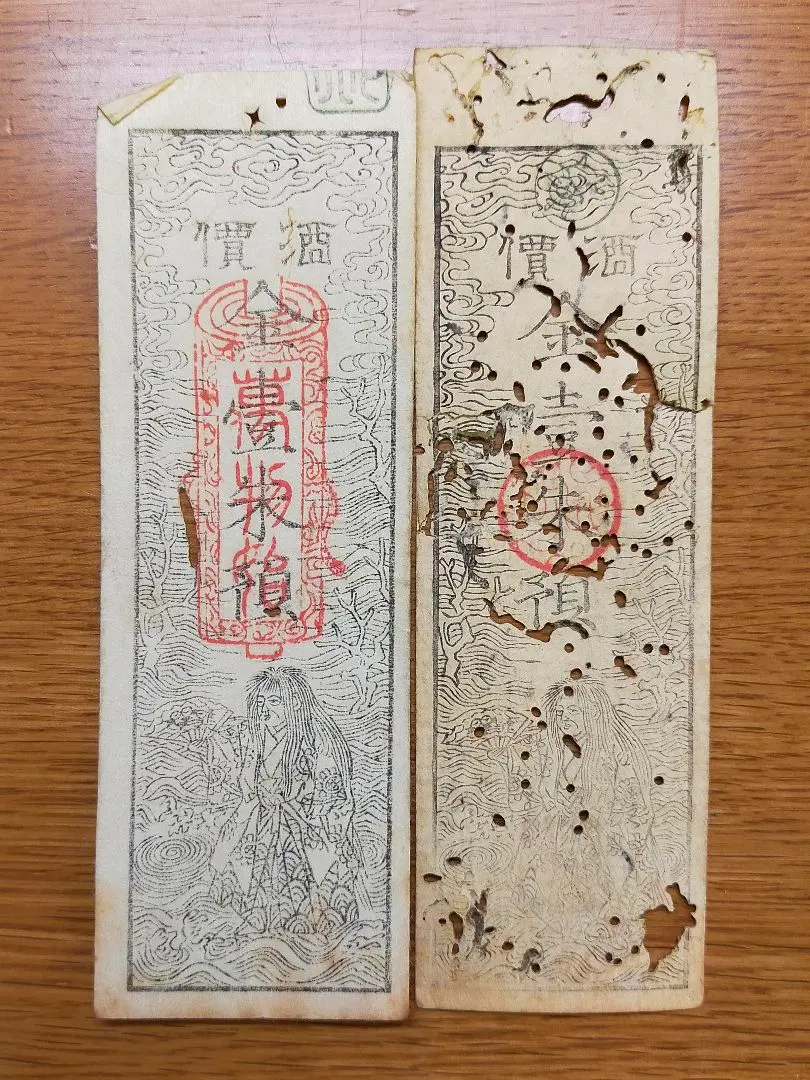 酒價
金壹朱預
酒價
金壹朱預